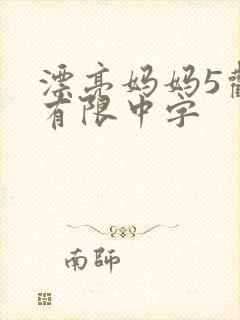 漂亮妈妈5
有限中字
南师